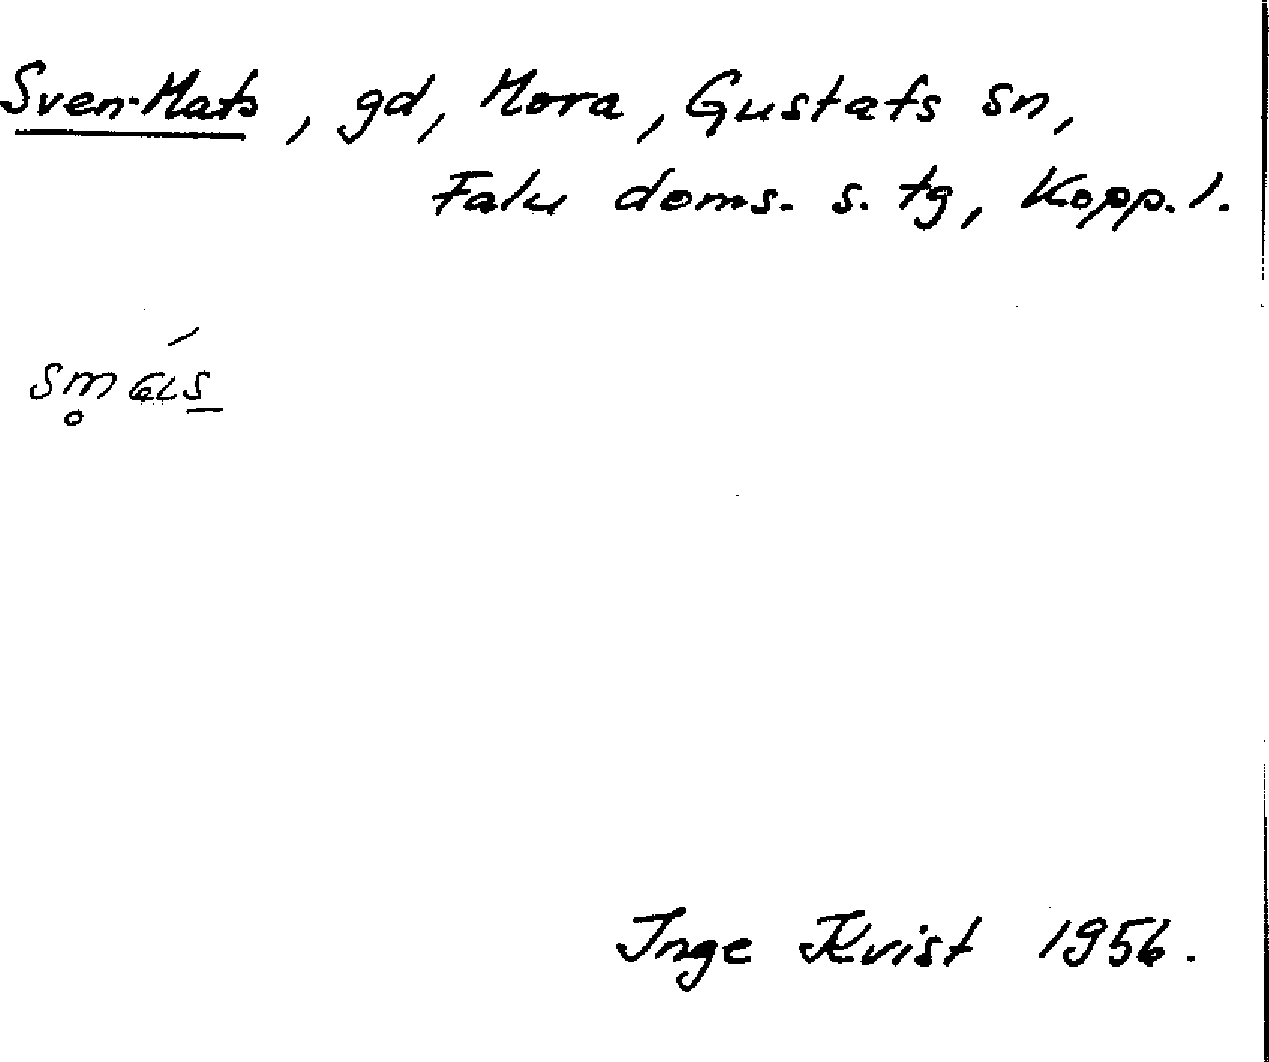 Sven-Mats, gd, Mora, Gustafs sn,
Falu doms. s. tg, Kopp. l.
Inge Kvist 1956.